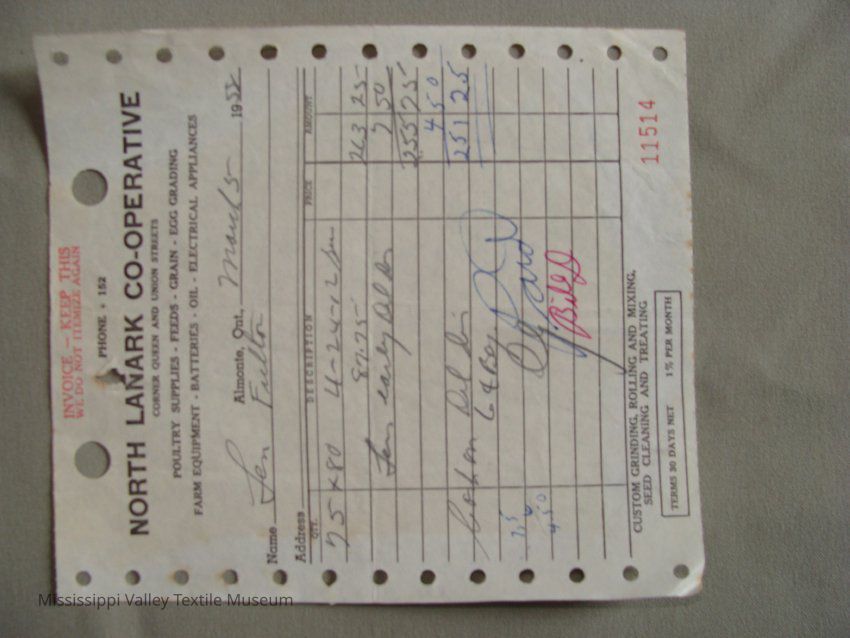 INVOICE — KEEP THIS
WE DO NOT ITEMIZE AGAIN
PHONE - 152
NORTH LANARK CO-OPERATIVE
CORNER QUEEN AND UNION STREETS
POULTRY SUPPLIES - FEEDS - GRAIN - EGG GRADING
FARM EQUIPMENT - BATTERIES - OIL - ELECTRICAL APPLIANCES
Almonte, Ont., March 5 19
Name Len Fulton
Address
QTY. DESCRIPTION PRICE AMOUNT
75 x 80 4-24-12 263 25
87.75 7 50
Less early Del Dis 255 75
4 50
251 25
64 Bags
75 6
4 50
Bill D
CUSTOM GRINDING, ROLLING AND MIXING,
SEED CLEANING AND TREATING
11514
TERMS 30 DAYS NET 1% PER MONTH
Mississippi Valley Textile Museum